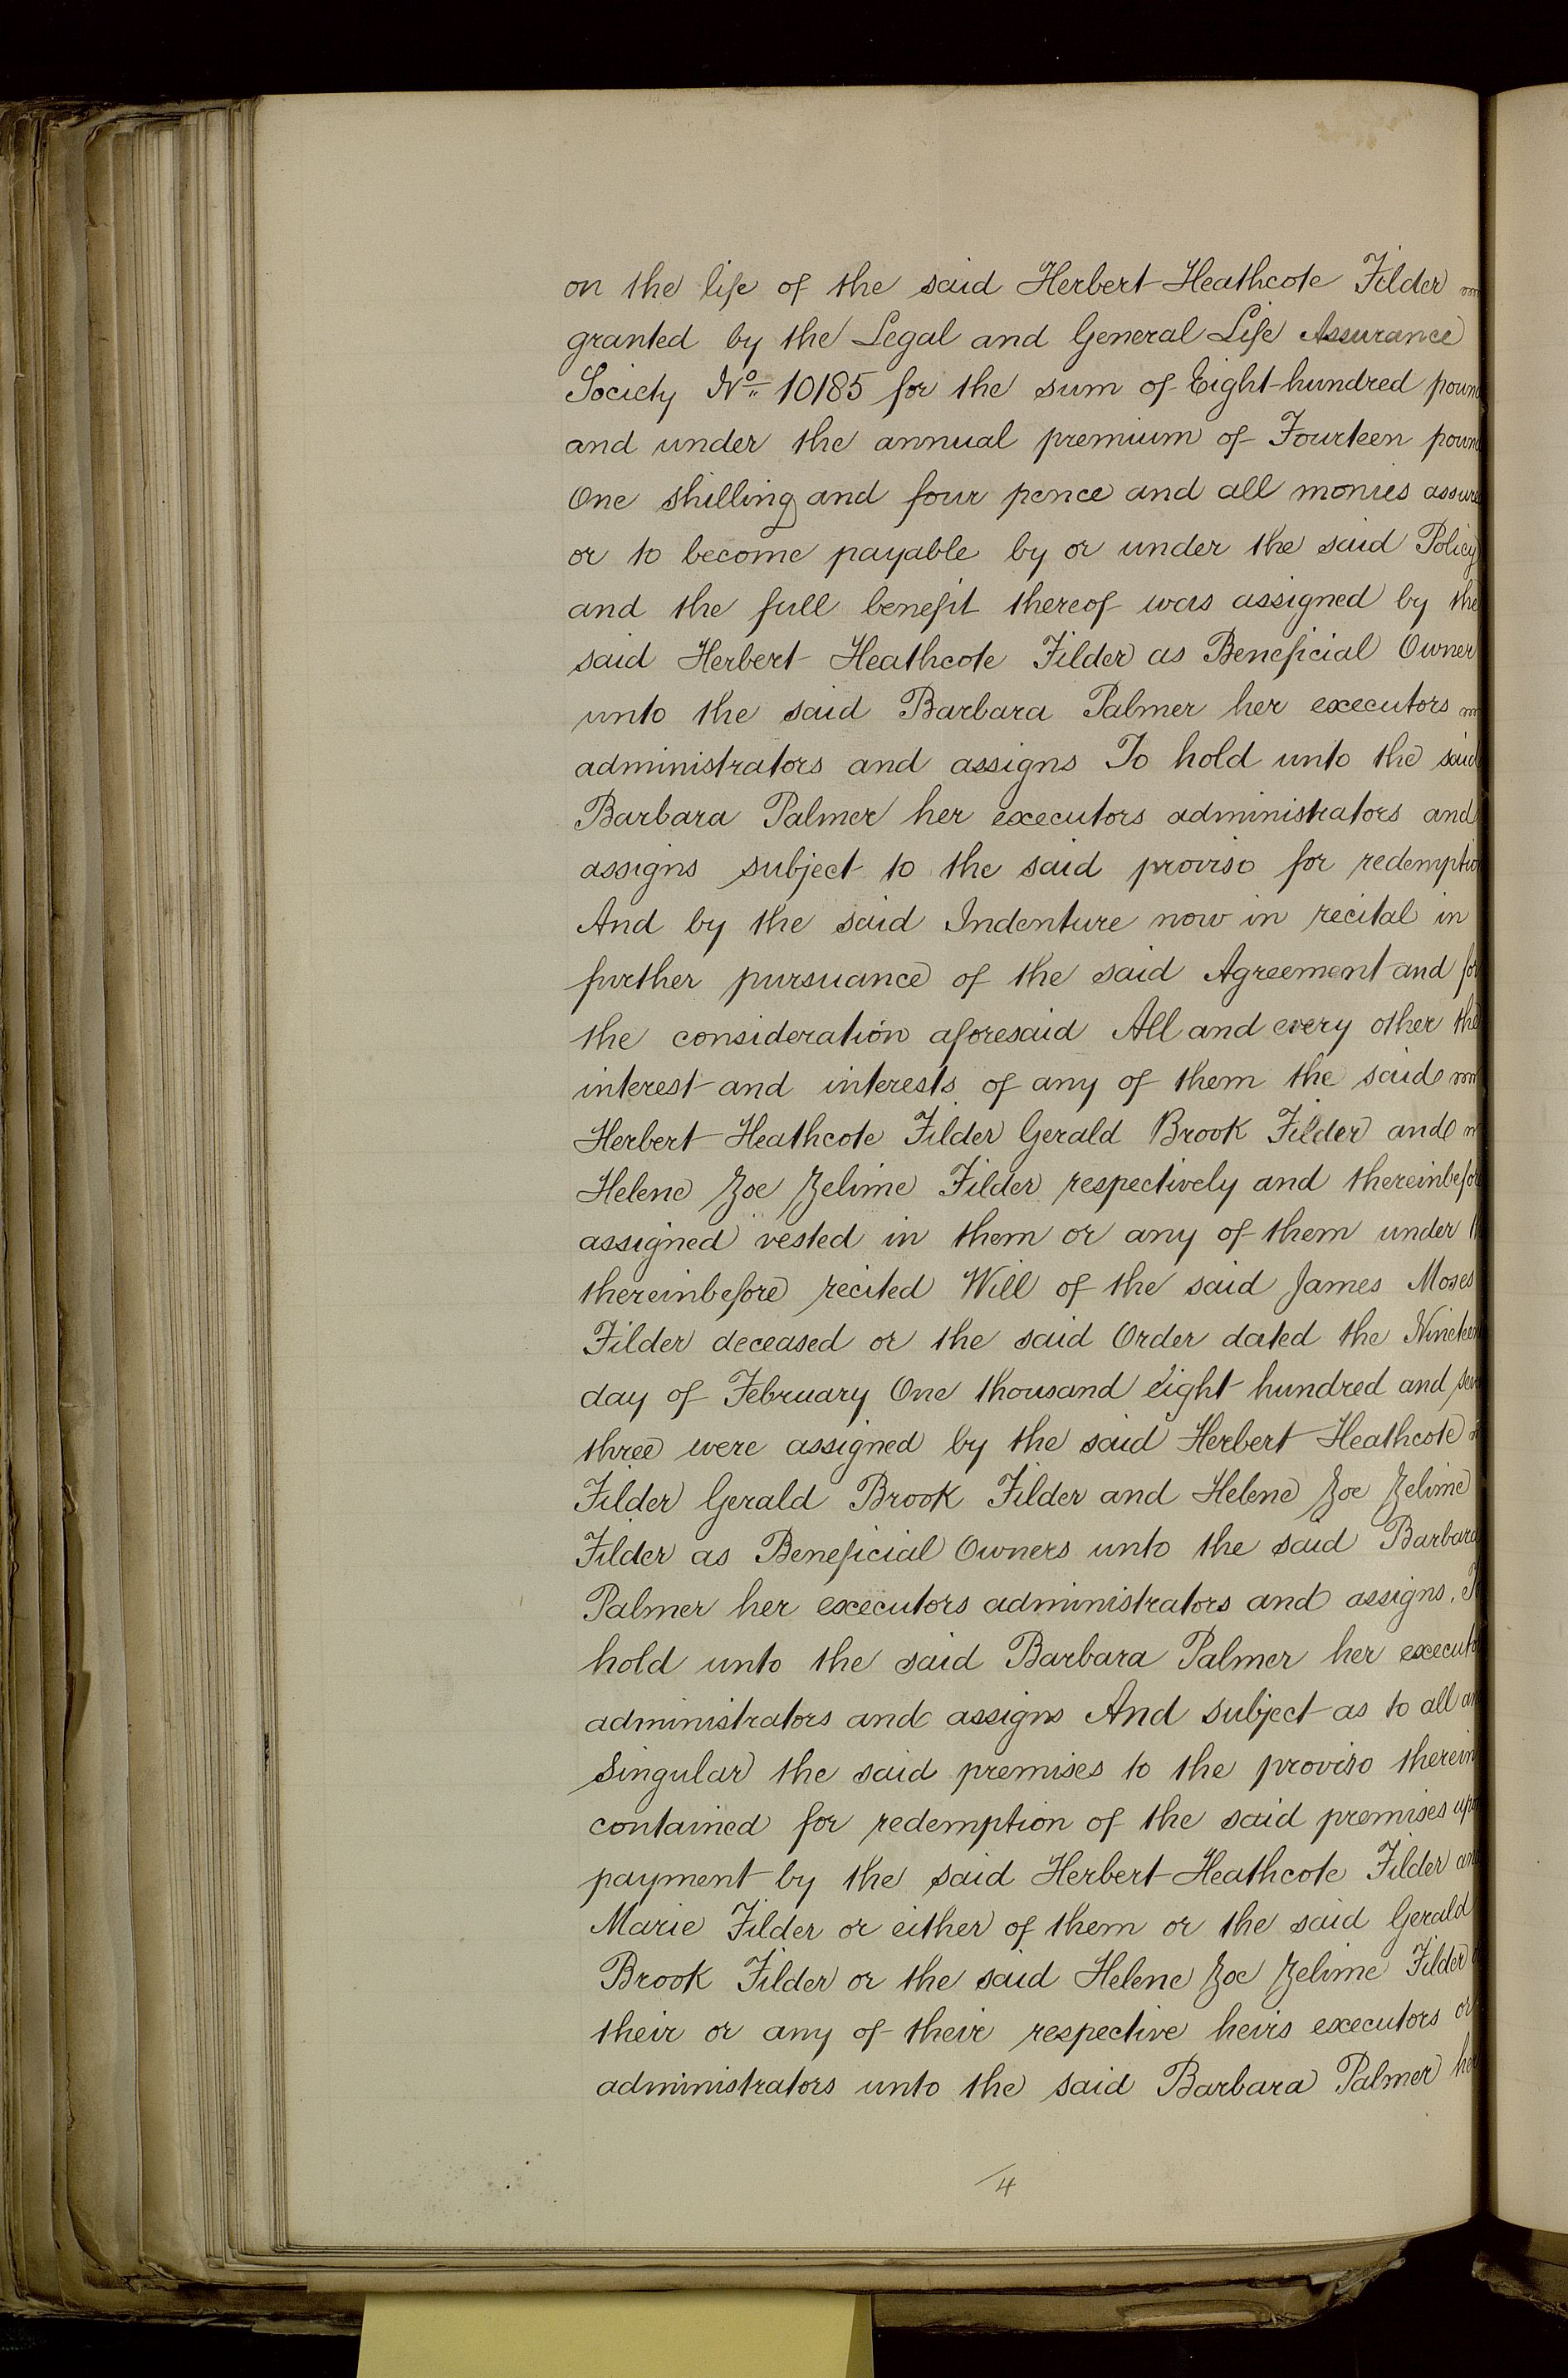 on the life of the said Herbert Heathcote Filder
granted by the Legal and General Life Assurance
Society No. 10185 for the sum of Eight hundred poun
and under the annual premium of Fourteen poun
One shilling and four pence and all monies assure
or to become payable by or under the said Policy
and the full benefit thereof was assigned by the
said Herbert Heathcote Filder as Beneficial Owner
unto the said Barbara Palmer her executors
administrators and assigns To hold unto the said
Barbara Palmer her executors administrators and
assigns subject to the said proviso for redemptio
And by the said Indenture now in recital in
further pursuance of the said Agreement and for
the consideration aforesaid All and every other the
interest and interests of any of them the said
Herbert Heathcote Filder Gerald Brook Filder and
Helene Zoe Zelime Filder respectively and thereinbefor
assigned vested in them or any of them under
thereinbefore recited Will of the said James Moses
Filder deceased or the said Order dated the Nineteen
day of February One thousand eight hundred and sev
three were assigned by the said Herbert Heathcote
Filder Gerald Brook Filder and Helene Zoe Zelime
Filder as Beneficial Owners unto the said Barbara
Palmer her executors administrators and assigns. T
hold unto the said Barbara Palmer her executo
administrators and assigns And subject as to all an
singular the said premises to the proviso therein
contained for redemption of the said premises upo
payment by the said Herbert Heathcote Filder and
Marie Filder or either of them or the said Gerald
Brook Filder or the said Helene Zoe Zelime Filder
their or any of their respective heirs executors or
administrators unto the said Barbara Palmer her
4